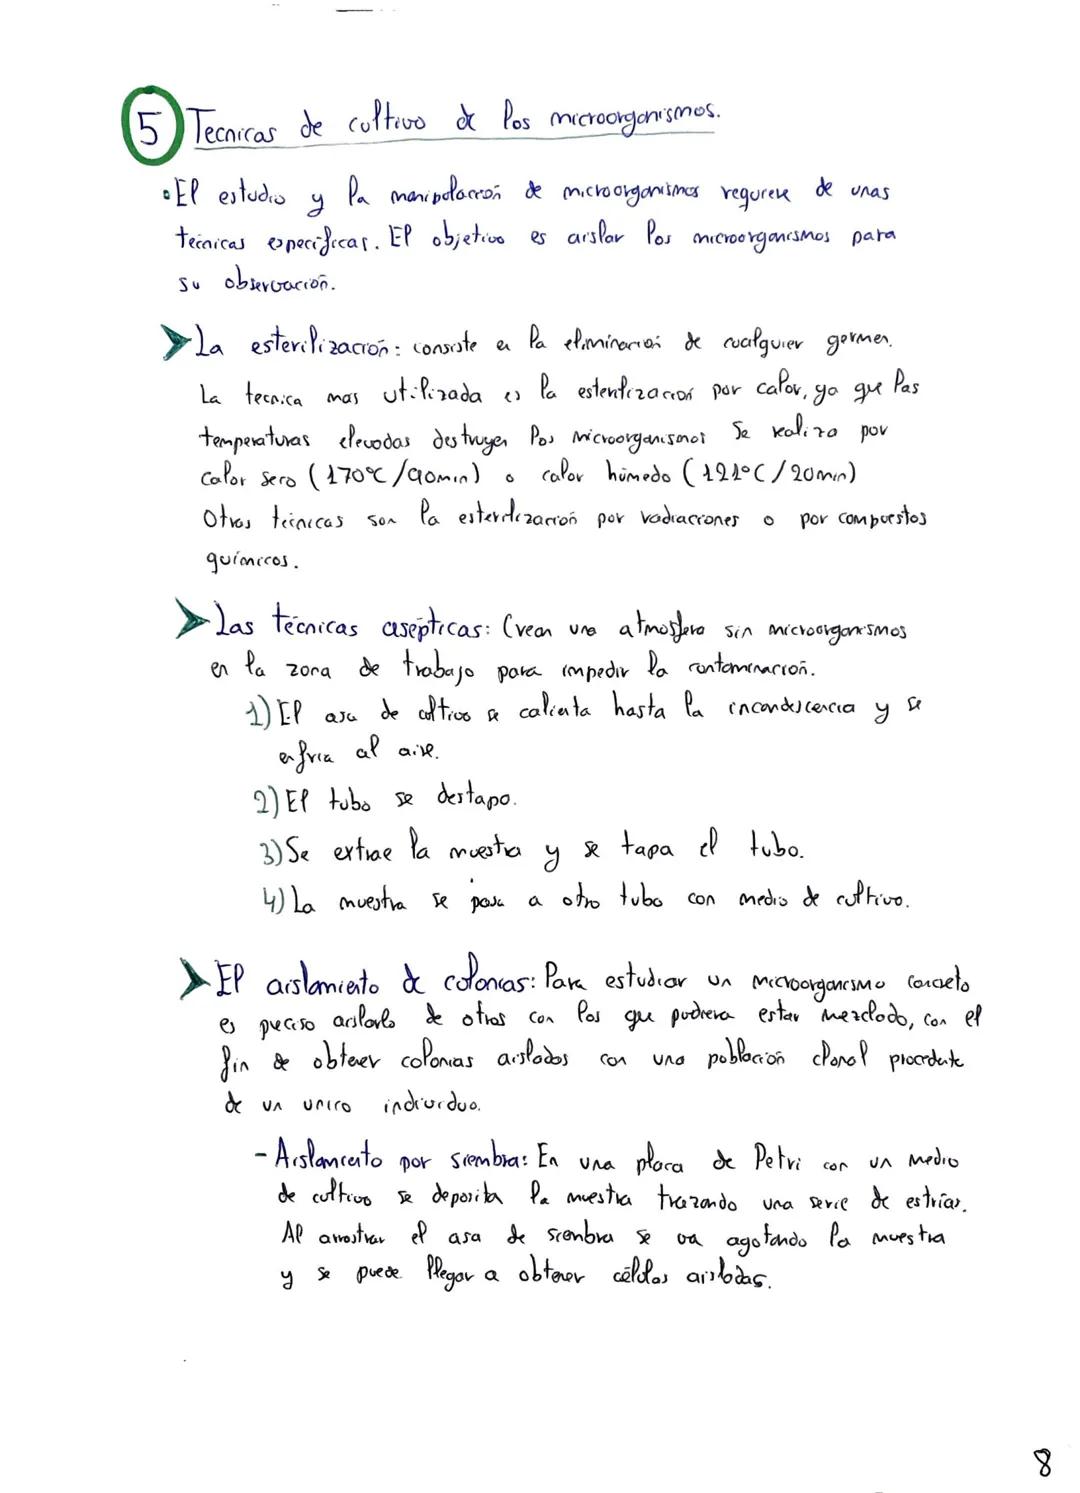 5 Tecnicas de cultivo de los microorganismos.
• El estudio y la manipulación de microorganismos requiere de unas
técnicas especificas. El objetivo es aislar los microorganismos para
su observación.
➤ La esterilización: consiste en la eliminación de cualquier germen.
La tecnica mas utilizada es la esterilización por calor, ya que las
temperaturas elevadas destruyen los microorganismos Se realiza por
calor seco (170°C/90min) o calor húmedo (121°C/20min)
Otras técnicas son la esterilización por radiacciones o por compuestos
químicos.
➤ Las técnicas asépticas: Crean una atmosfera sin microorganismos
en la zona de trabajo para impedir la contaminación.
1) El asa de cultivo se calienta hasta la incandescencia y se
enfria al aire.
2) El tubo se destapa.
3) Se extrae la muestra y se tapa el tubo.
4) La muestra se pasa a otro tubo con medio de cultivo.
➤ El aislamiento de colonias: Para estudiar un microorganismo concreto
es preciso aislarlo de otros con los que pudiera estar mezclado, con el
fin de obtener colonias aisladas con una población clonal procedente
de un unico individuo.
- Aislamiento por siembra: En una placa de Petri con un medio
de cultivo se deposita la muestra trazando una serie de estrías.
Al arrastrar el asa de siembra se va agotando la muestra
y se puede llegar a obtener células aisladas.
8